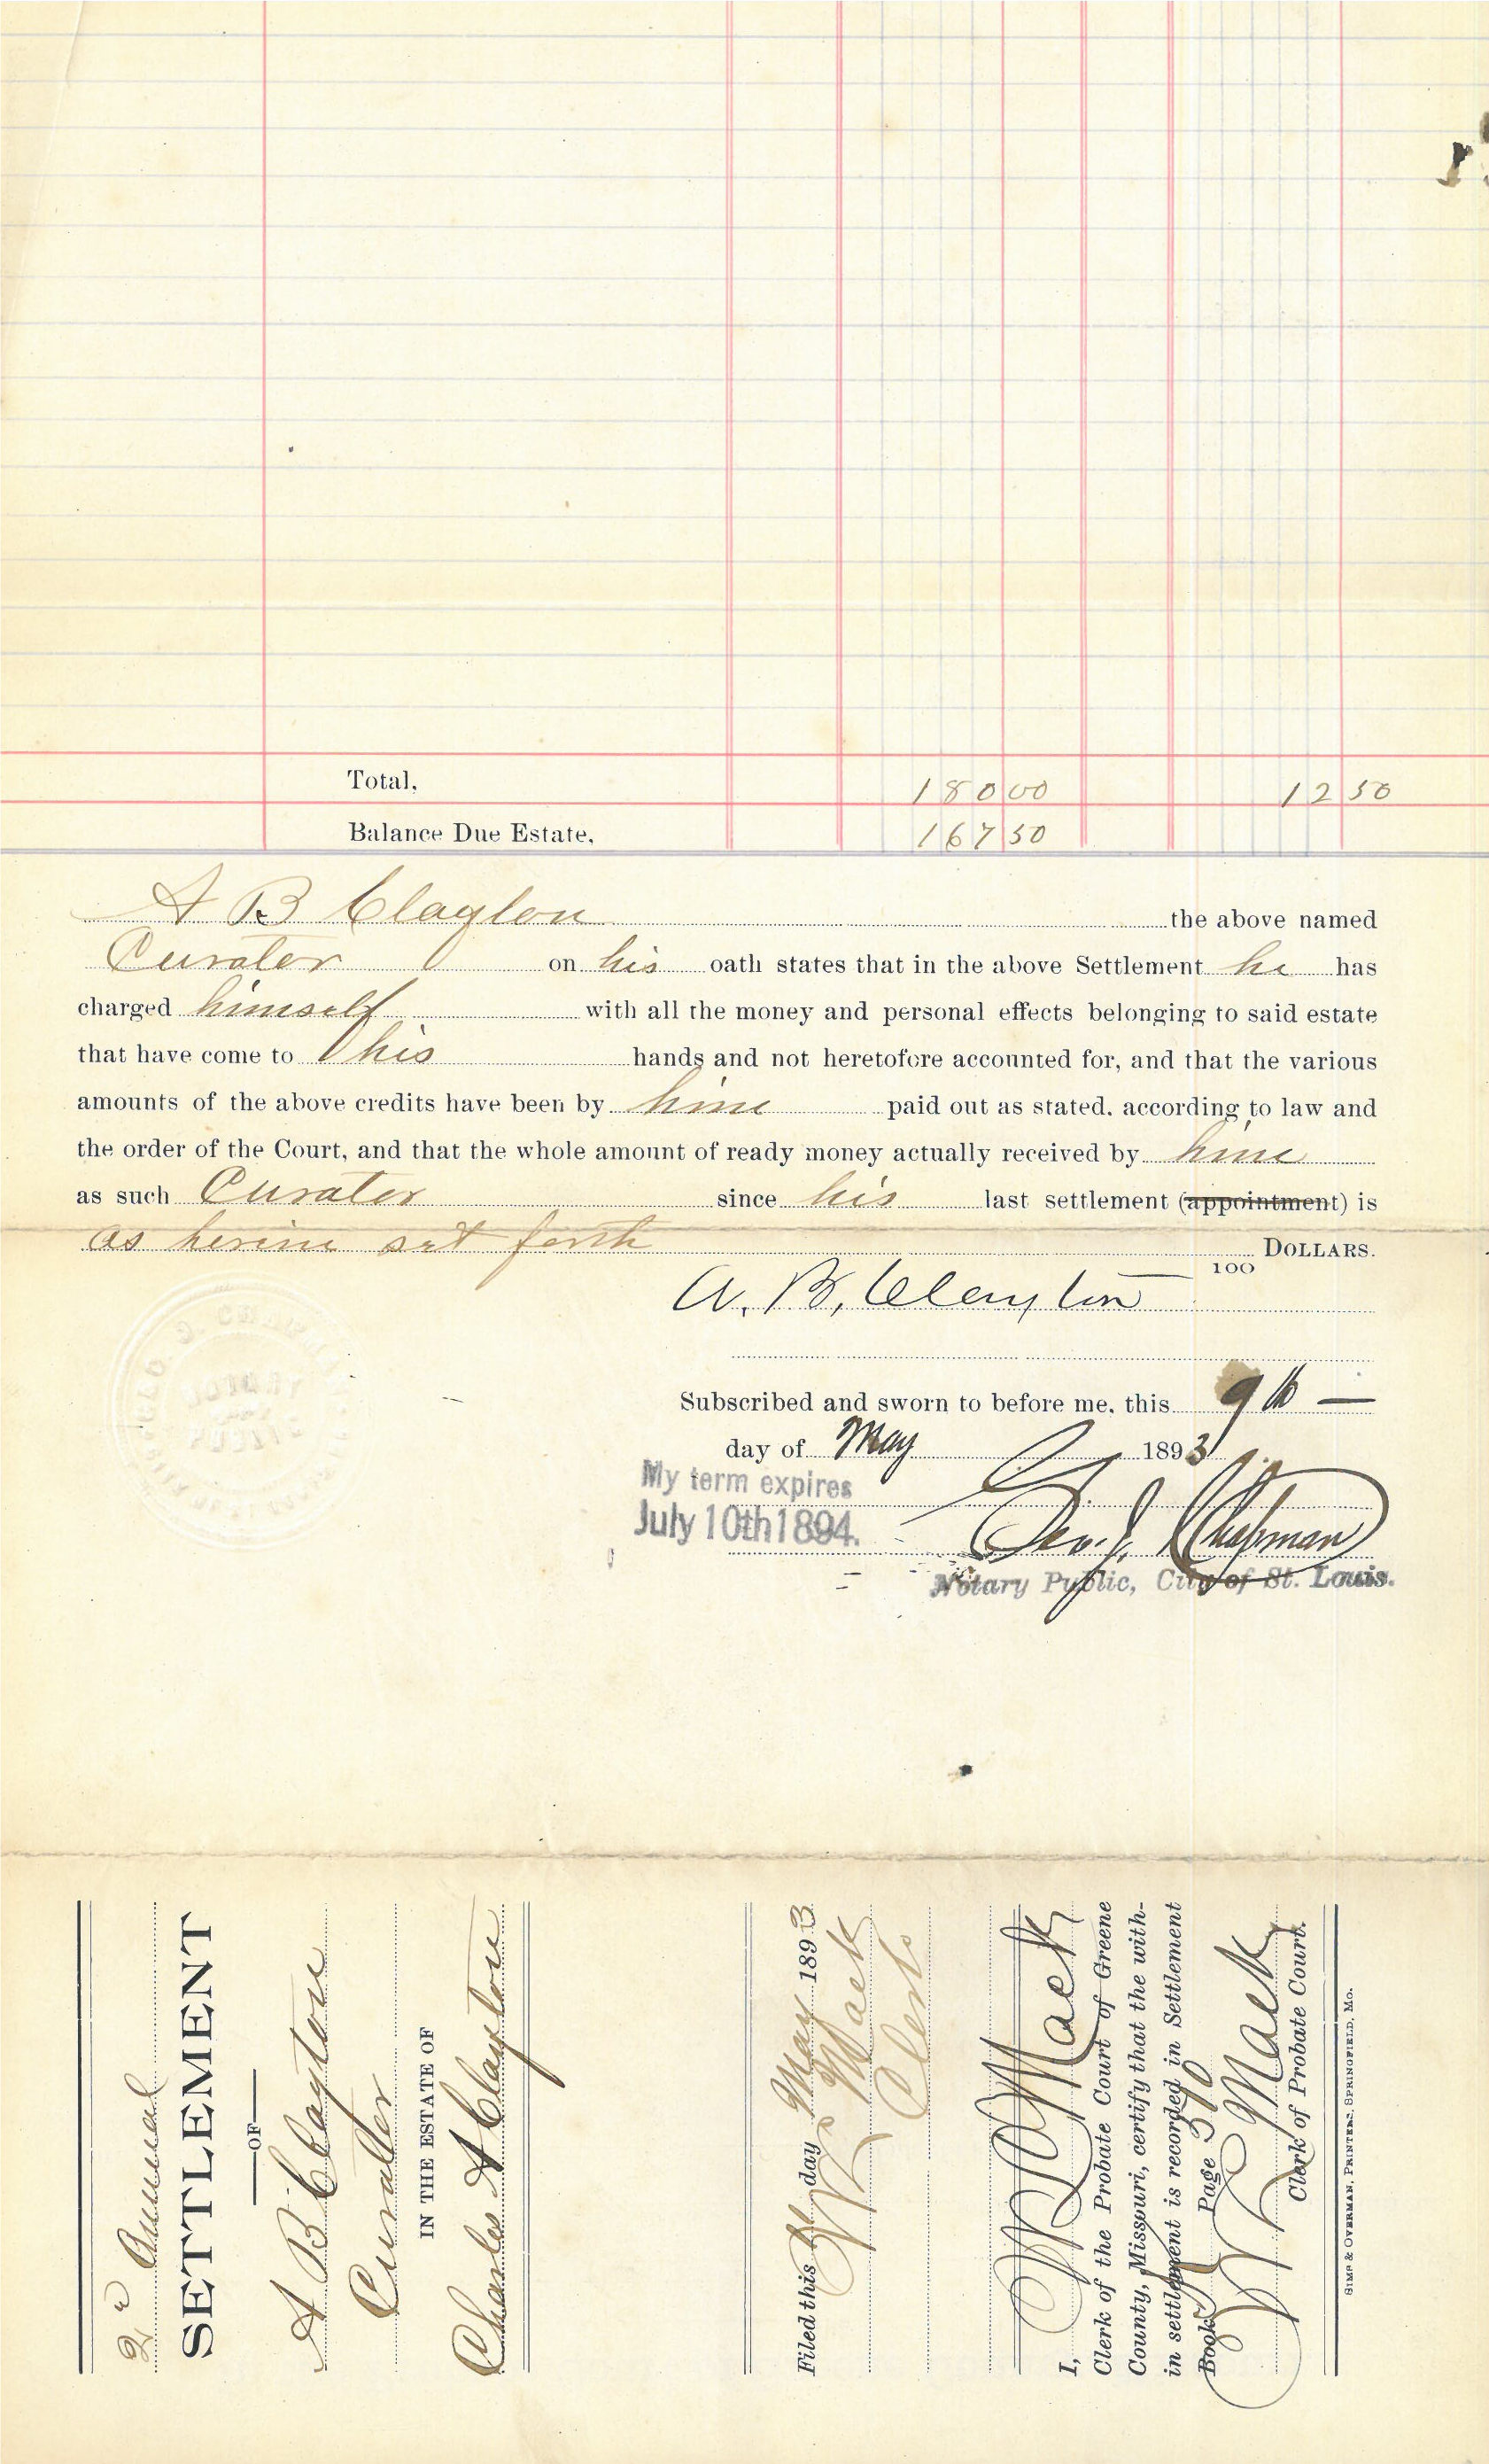 Total, 180 00 12 50
Balance Due Estate, 167 50
A B Clayton the above named
Curator on his oath states that in the above Settlement he has
charged himself with all the money and personal effects belonging to said estate
that have come to his hands and not heretofore accounted for, and that the various
amounts of the above credits have been by him paid out as stated, according to law and
the order of the Court, and that the whole amount of ready money actually received by him
as such Curator since his last settlement (appointment) is
as herein set forth DOLLARS.
100
A. B. Clayton
Subscribed and sworn to before me, this 9th
day of May 1893
My term expires
July 10th 1894.
Geo. J. Chapman
Notary Public, City of St. Louis.
2d Annual
SETTLEMENT
OF
A B Clayton
Curator
IN THE ESTATE OF
Charles A Clayton
Filed this day May 1893
Mack
Clerk
I, Mack
Clerk of the Probate Court of Greene
County, Missouri, certify that the with-
in settlement is recorded in Settlement
Book Page 390
Mack
Clerk of Probate Court.
SIMS & OVERMAN, PRINTERS, SPRINGFIELD, MO.